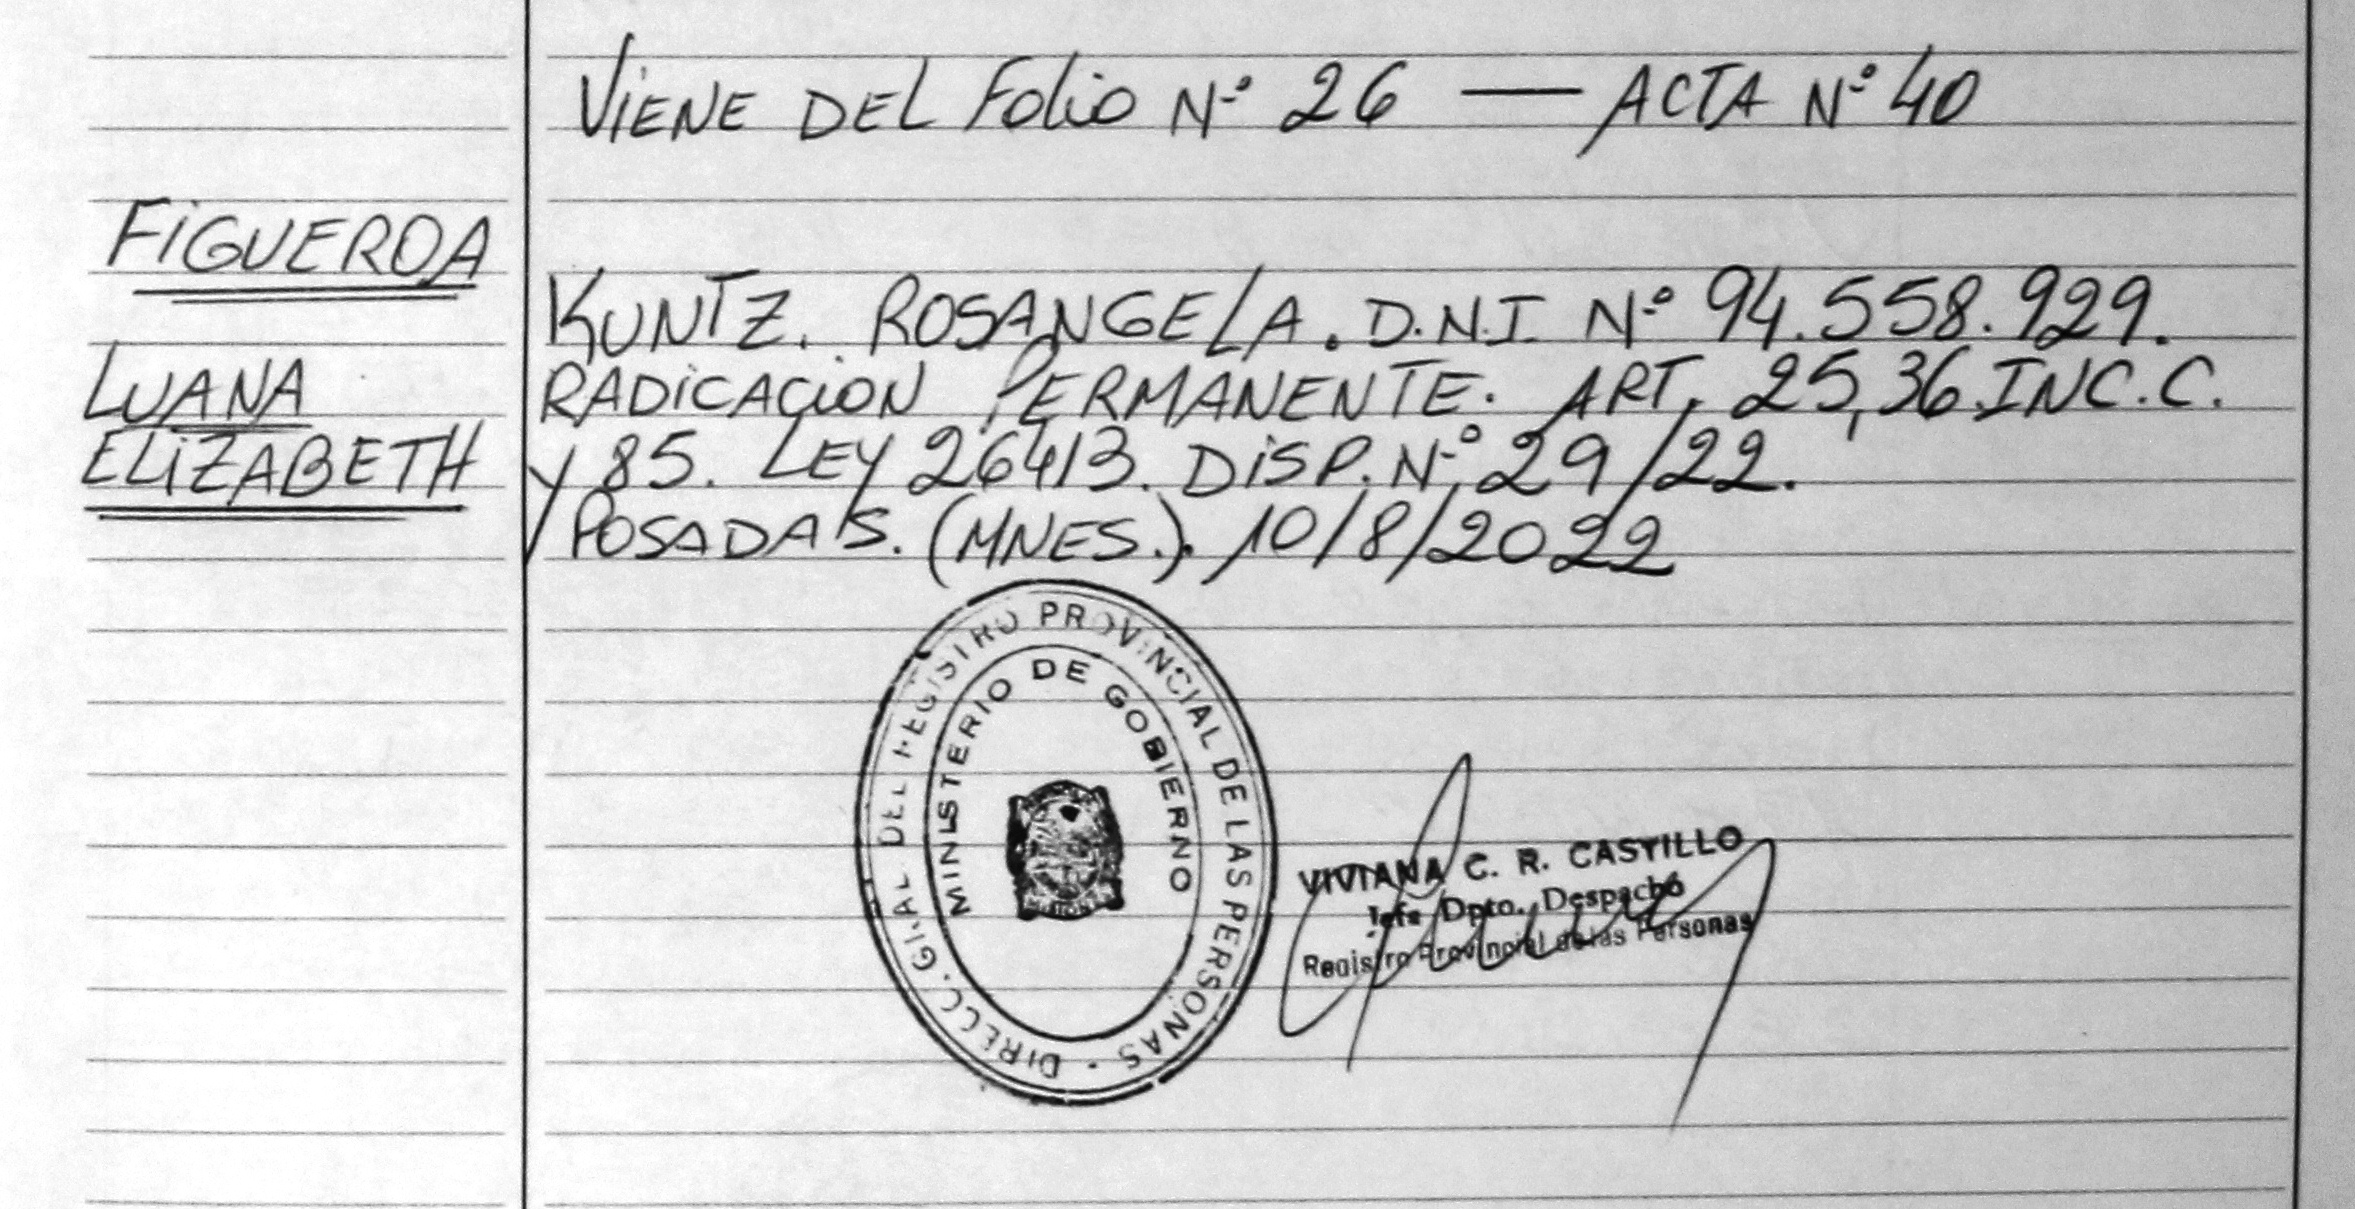 VIENE DEL FOLIO Nº 26 — ACTA Nº 40
FIGUEROA
LUANA
ELIZABETH
KUNTZ. ROSANGELA. D.N.I. Nº 94.558.929.
RADICACION PERMANENTE. ART. 25, 36. INC. C.
Y 85. LEY 26413. DISP. Nº 29/22.
POSADAS. (MNES.). 10/8/2022
DIRECC. GRAL DEL REGISTRO PROVINCIAL DE LAS PERSONAS -
MINISTERIO DE GOBIERNO
VIVIANA C. R. CASTILLO
Jefe Dpto. Despacho
Registro Provincial de las Personas